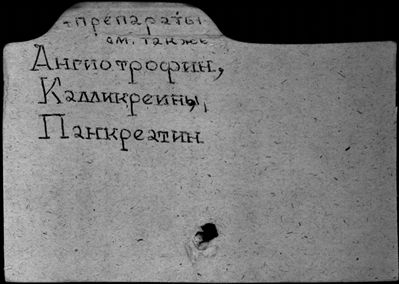 -препараты
см. также
Ангиотрофин,
Калликреины,
Панкреатин